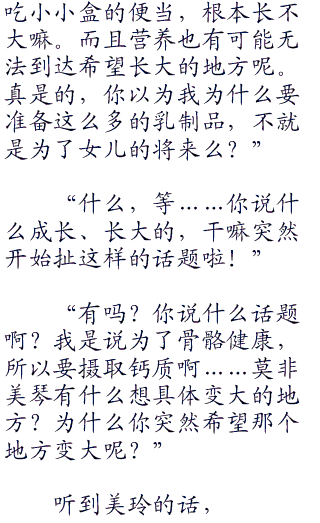 吃小小盒的便当，根本长不
大嘛。而且营养也有可能无
法到达希望长大的地方呢。
真是的，你以为我为什么要
准备这么多的乳制品，不就
是为了女儿的将来么？”
“什么，等……你说什
么成长、长大的，干嘛突然
开始扯这样的话题啦！”
“有吗？你说什么话题
啊？我是说为了骨骼健康，
所以要摄取钙质啊……莫非
美琴有什么想具体变大的地
方？为什么你突然希望那个
地方变大呢？”
听到美玲的话，